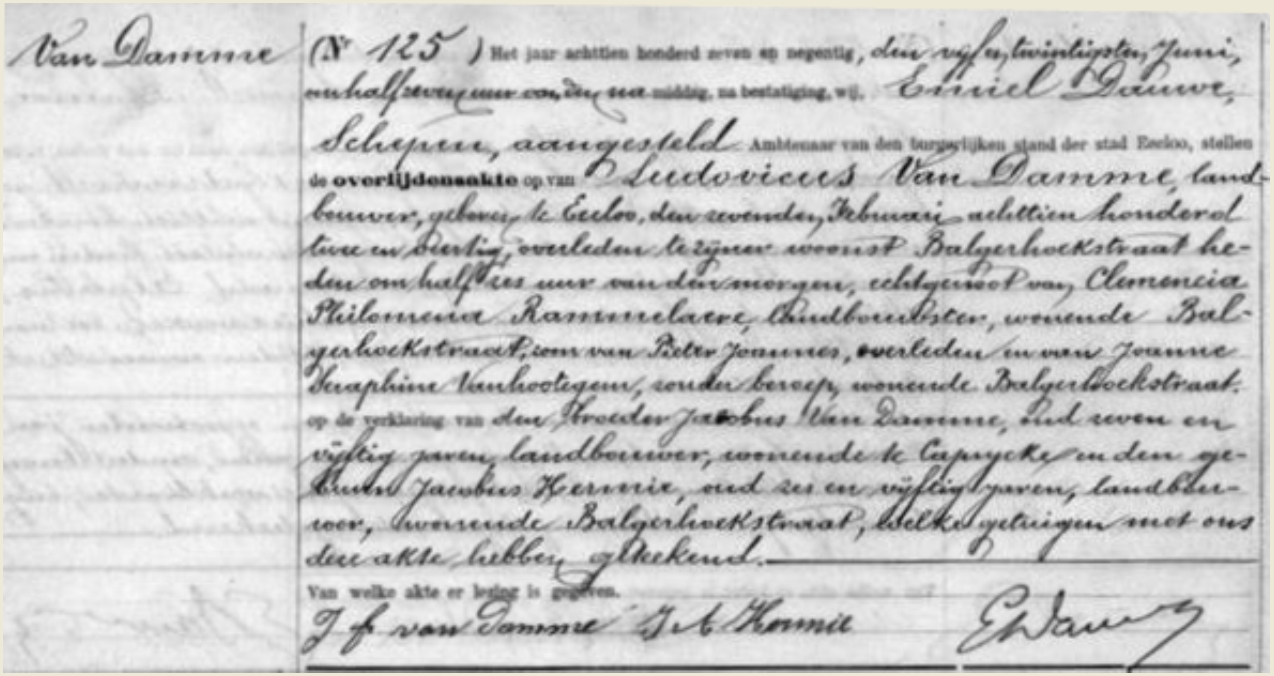 Van Damme
(Nr 125) Het jaar achttien honderd zeven en negentig, den vyf en twintigsten Juni,
om half zeven uur van den na middag, na bestatiging, wij, Emiel Dauwe,
Schepen, aangesteld Ambtenaar van den burgerlijken stand der stad Eecloo, stellen
de overlijdensakte op van Ludovicus Van Damme, land-
bouwer, geboren te Eecloo, den zevenden Februari achttien honderd
twee en veertig, overleden te zyner woonst Balgerhoekstraat he-
den om half zes uur van den morgen, echtgenoot van Clemencia
Philomena Rammelaere, landbouwster, wonende Bal-
gerhoekstraat, zoon van Pieter Joannes, overleden en van Joanne
Seraphine Vanhootegem, zonder beroep, wonende Balgerhoekstraat.
op de verklaring van den broeder Jacobus Van Damme, oud zeven en
vyftig jaren, landbouwer, wonende te Caprycke en den ge-
buur Jacobus Hermie, oud zes en vyftig jaren, landbou-
wer, wonende Balgerhoekstraat, welke getuigen met ons
deze akte hebben geteekend.
Van welke akte er lezing is gegeven.
J f van Damme J A Hermie EDauwe